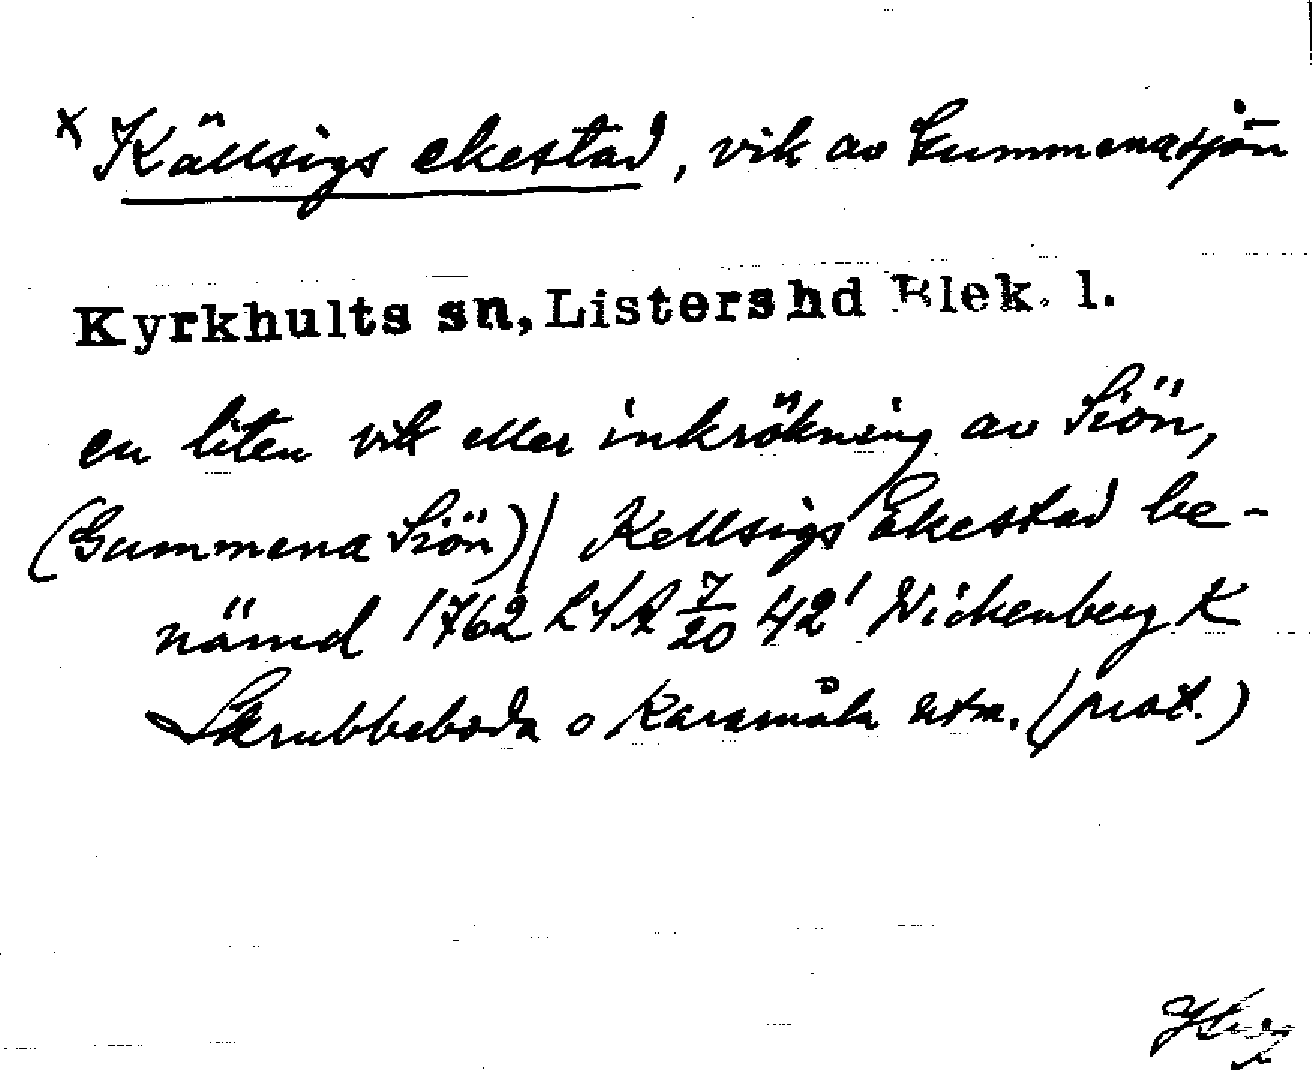 x Källsigs ekestad, vik av Gummenasjön
Kyrkhults sn, Listers hd Blek. l.
en liten vik eller inkrökning av Siön,
(Gummena Siön) / Kellsigs Ekestad be-
nämd 1762 LSA 7/20 42' Wickenberg K
Skrubbeboda o Karsmåla utm. (prot.)